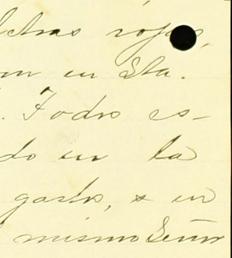 letras rojas,
en Sta.
Todo es-
do en la
gasto, y en
mismo Señor